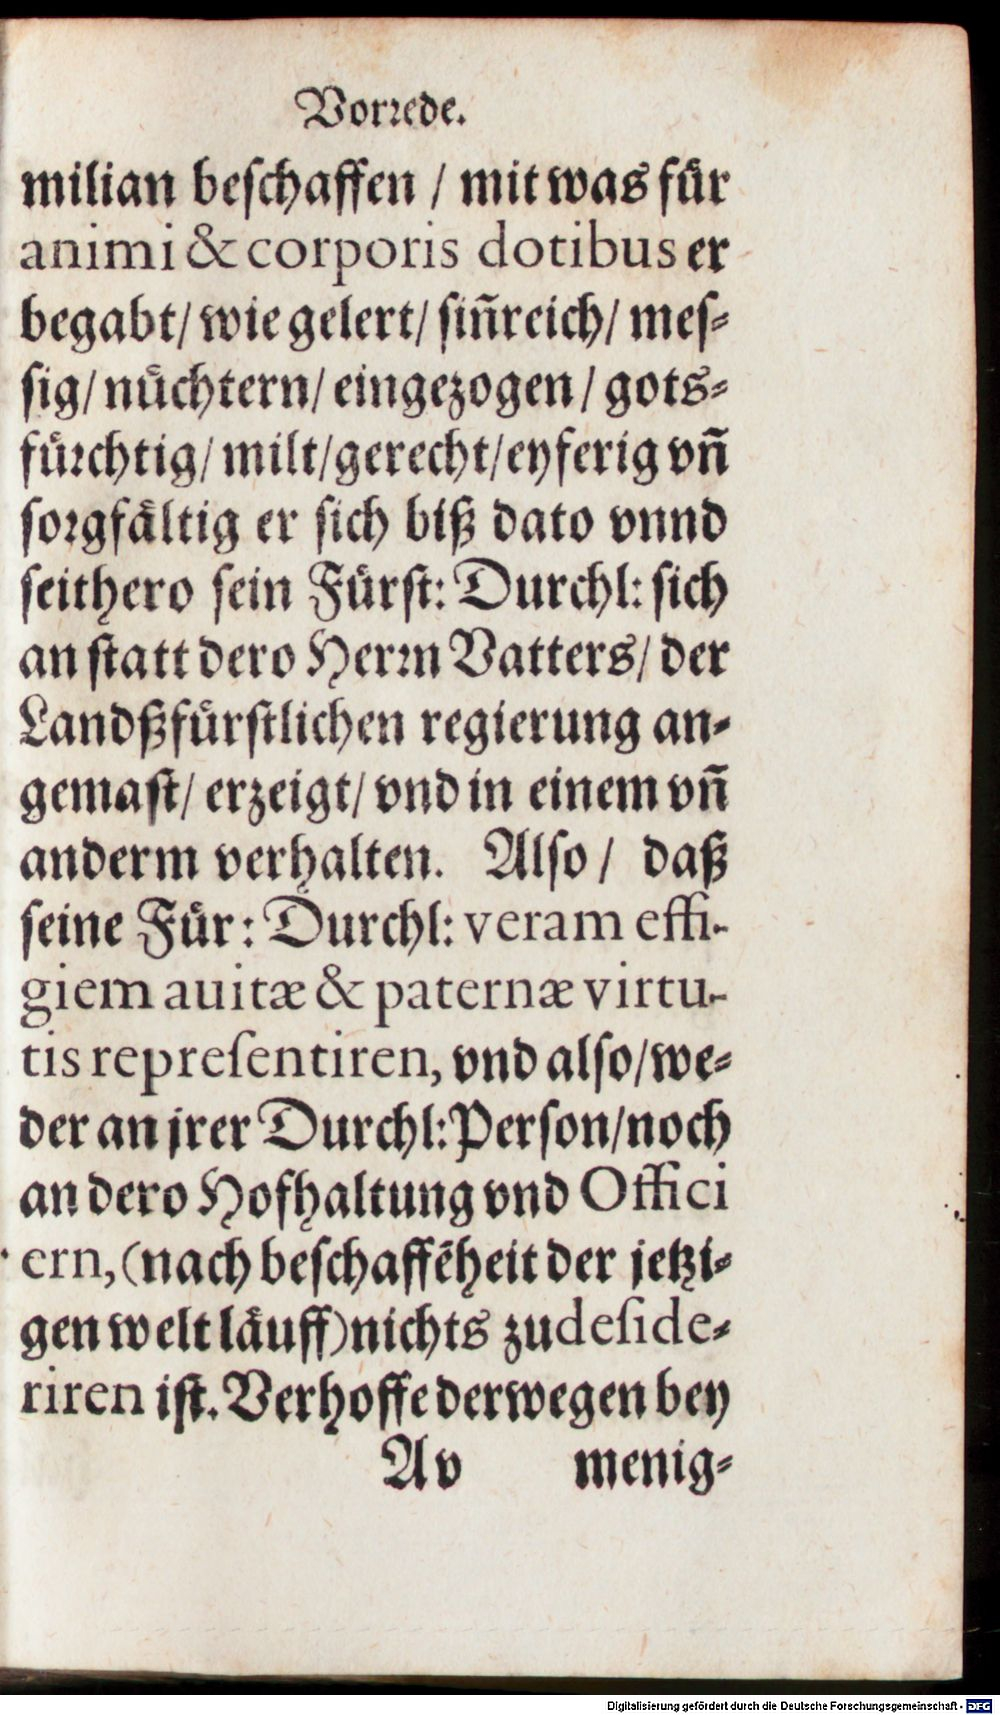 Vorrede.
milian beschaffen / mit was für
animi & corporis dotibus er
begabt/ wie gelert/ siñreich/ mes-
sig/ nüchtern/ eingezogen / gots-
fürchtig/ milt/gerecht/eyferig vñ
sorgfältig er sich biß dato vnnd
seithero sein Fürst: Durchl: sich
an statt dero Herrn Vatters/ der
Landßfürstlichen regierung an-
gemast/ erzeigt/ vnd in einem vñ
anderm verhalten. Also / daß
seine Für: Durchl: veram effi-
giem auitæ & paternæ virtu-
tis repreſentiren, vnd also/we-
der an jrer Durchl: Person/noch
an dero Hofhaltung vnd Offici
ern, (nach beschaffẽheit der jetzi-
gen welt läuff) nichts zu deſide-
riren ist. Verhoffe derwegen bey
A v menig-
Digitalisierung gefördert durch die Deutsche Forschungsgemeinschaft - DFG